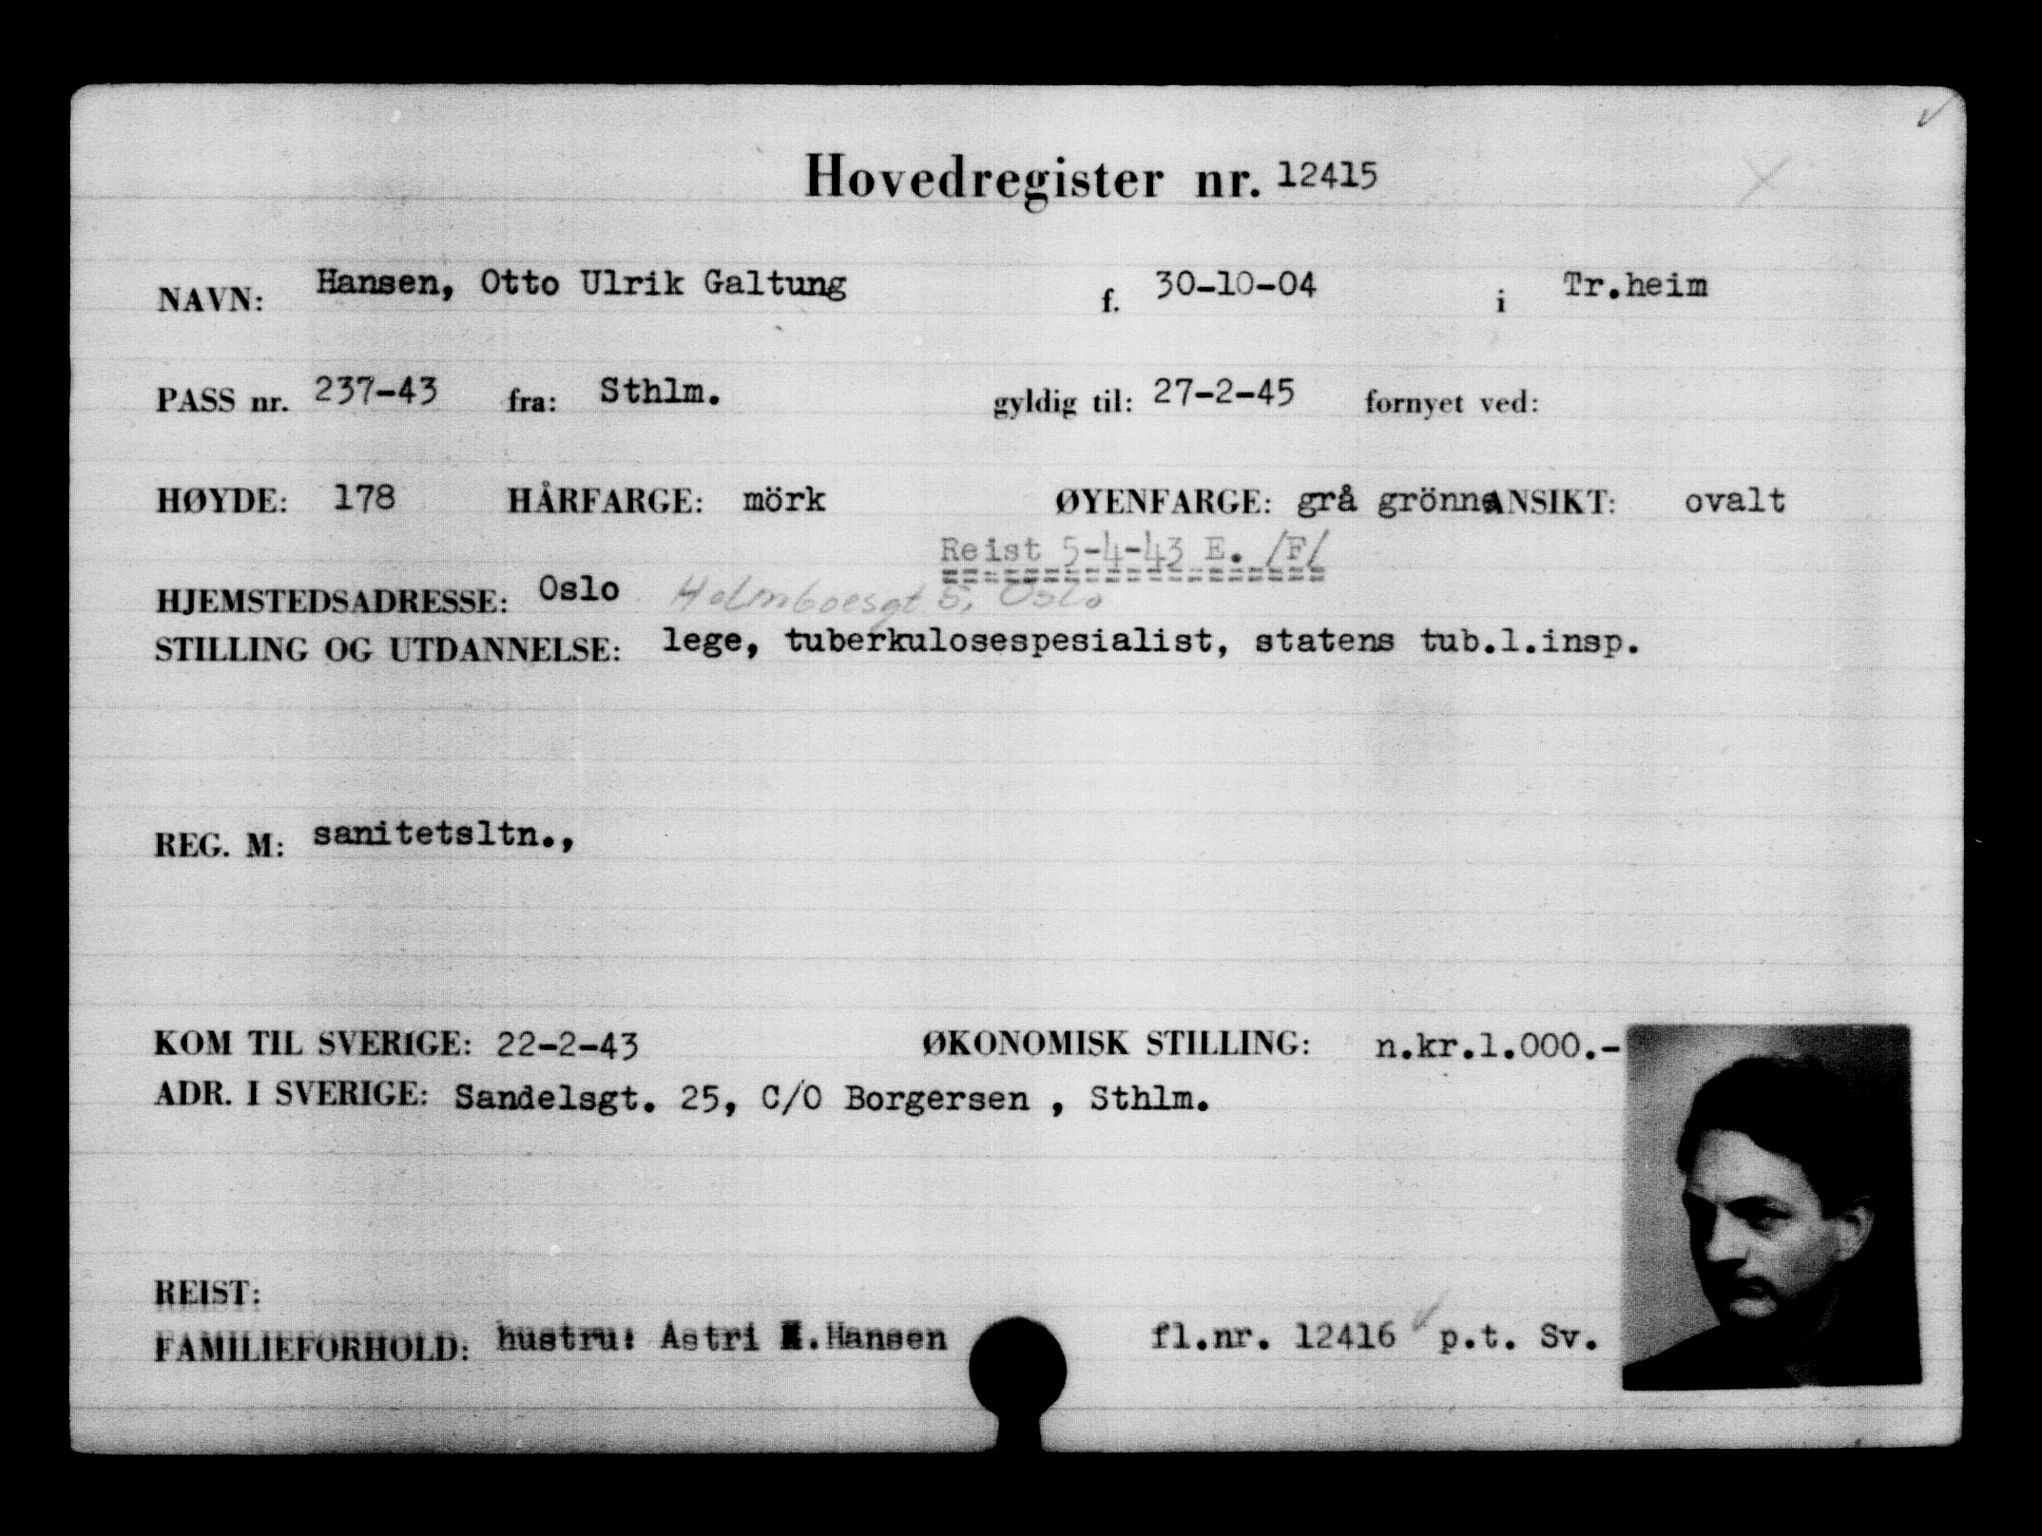 Hovedregister nr. 12415
NAVN: Hansen, Otto Ulrik Galtung f. 30-10-04 i Tr.heim
PASS nr. 237-43 fra: Sthlm. gyldig til: 27-2-45 fornyet ved:
HØYDE: 178 HÅRFARGE: mörk ØYENFARGE: grå grönne ANSIKT: ovalt
Reist 5-4-43 E. /F/
HJEMSTEDSADRESSE: Oslo Holmboesgt 5, Oslo
STILLING OG UTDANNELSE: lege, tuberkulosespesialist, statens tub.l.insp.
REG. M: sanitetsltn.,
KOM TIL SVERIGE: 22-2-43 ØKONOMISK STILLING: n.kr.1.000.-
ADR. I SVERIGE: Sandelsgt. 25, C/O Borgersen , Sthlm.
REIST:
FAMILIEFORHOLD: hustru: Astri Hansen fl.nr. 12416 p.t. Sv.